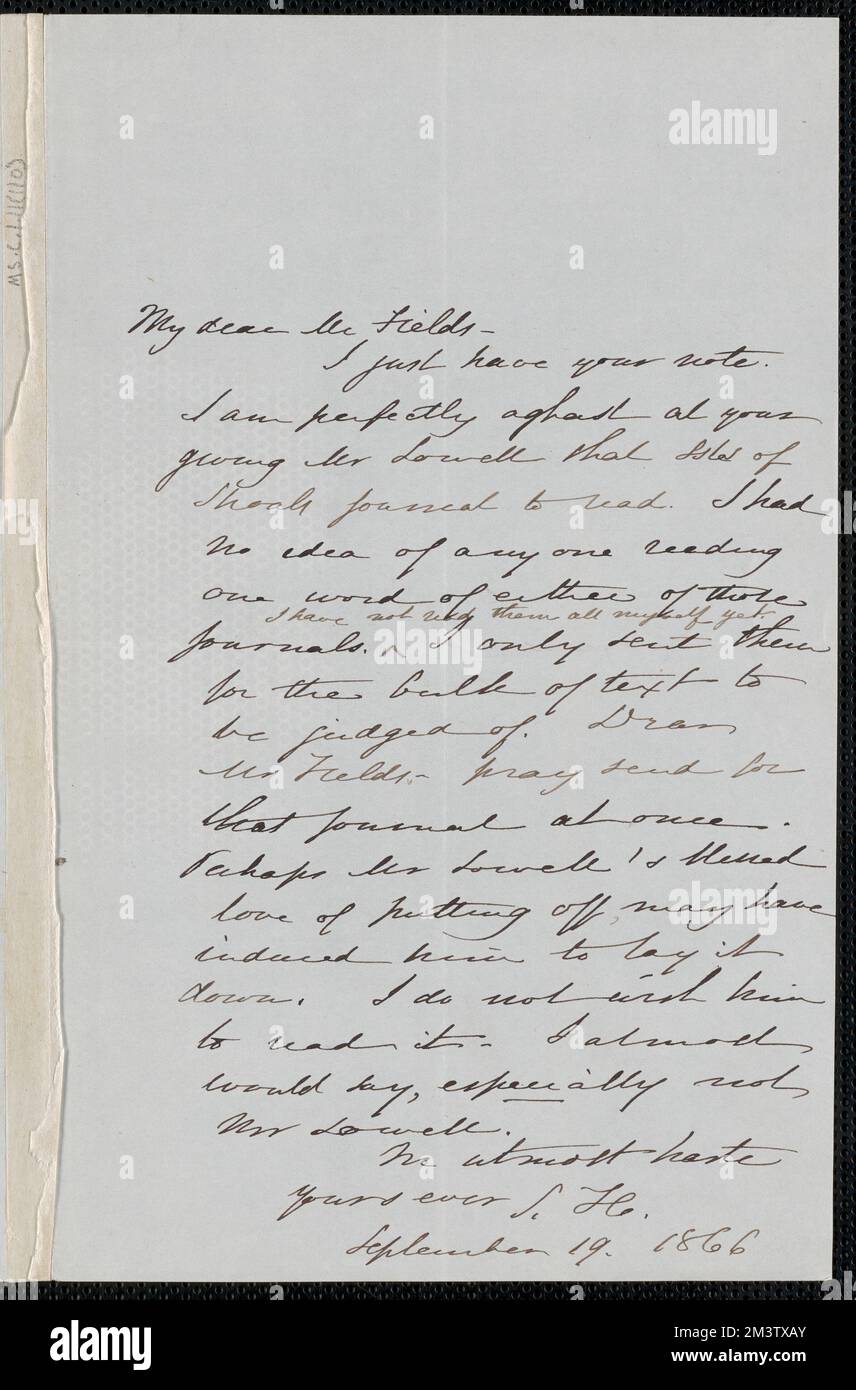 Ms.C.1.11(110)
My dear Mr Fields -
I just have your note.
I am perfectly aghast at your
giving Mr Lowell that Isles of
Shoals journal to read. I had
no idea of any one reading
one word of either of those
I have not read them all myself yet.
journals. ^ I only sent them
for the bulk of text to
be judged of. Dear
Mr Fields - pray send for
that journal at once.
Perhaps Mr Lowell's blessed
love of putting off, may have
induced him to lay it
down. I do not wish him
to read it - I almost
would say, especially not
Mr Lowell.
In utmost haste
yours ever S. H.
September 19. 1866
a
alamy
alamy
Image ID: 2M3TXAY
www.alamy.com